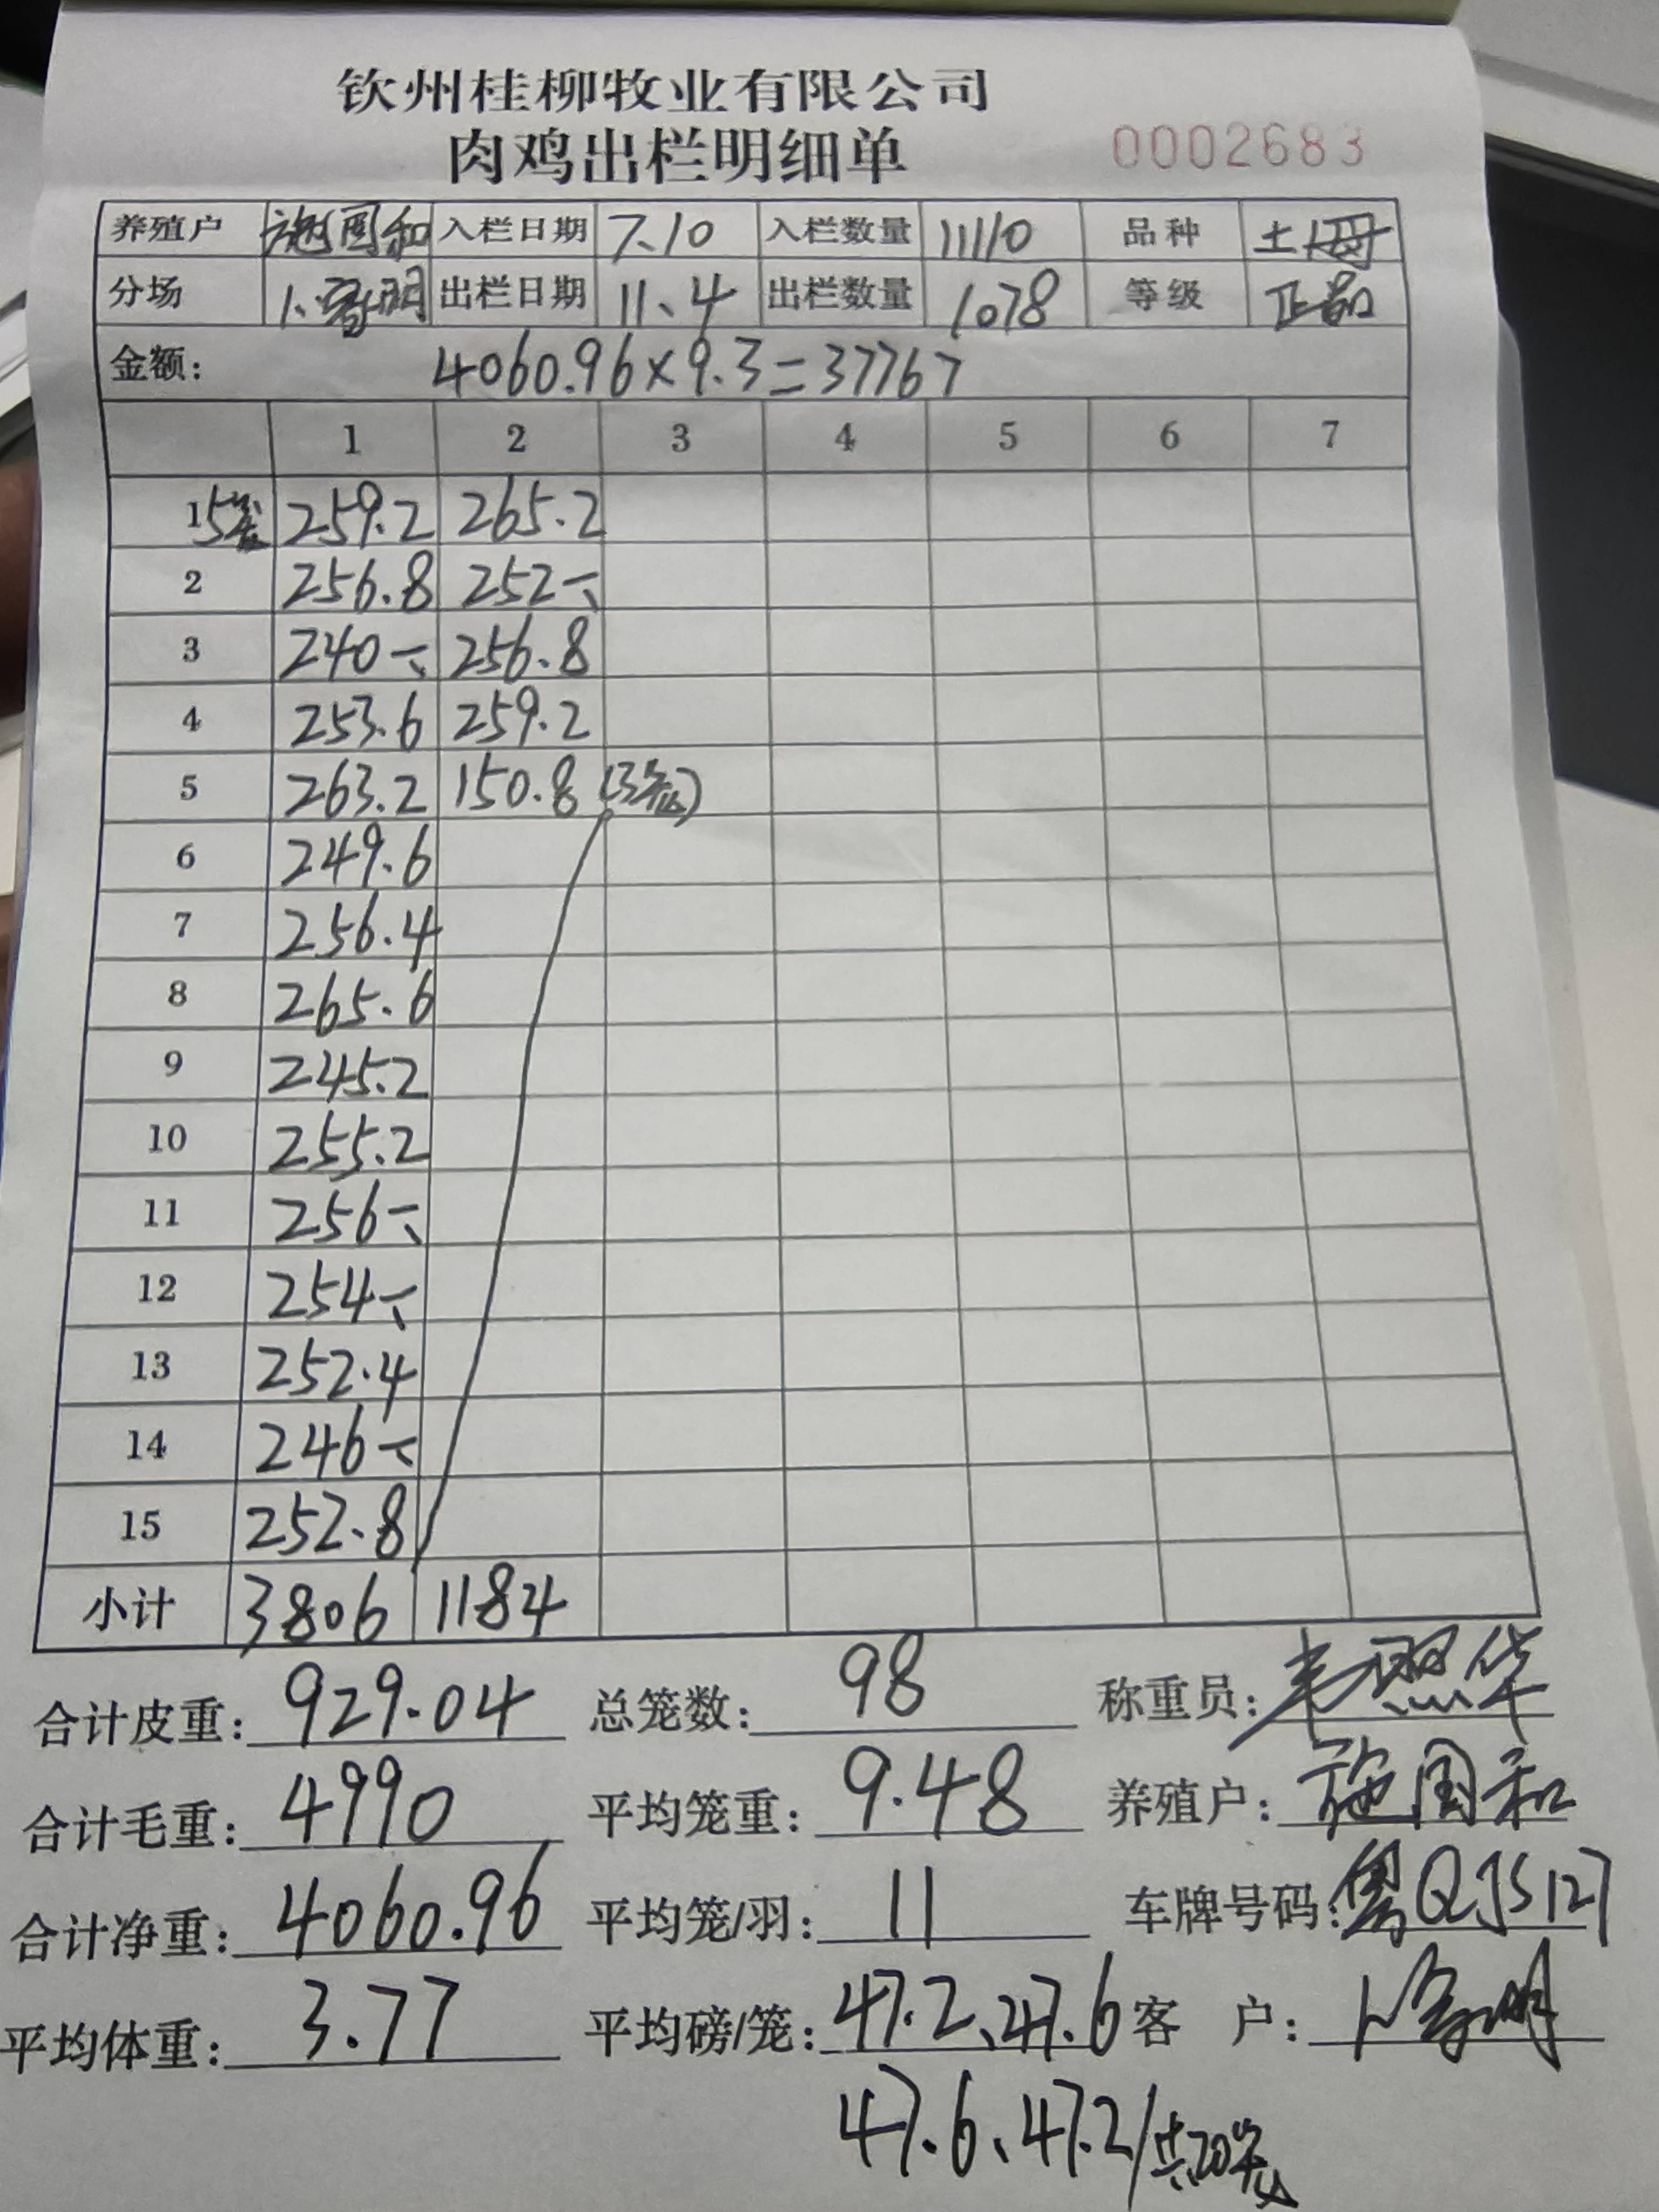 钦州桂柳牧业有限公司
肉鸡出栏明细单 0002683
养殖户 施国和 入栏日期 7.10 入栏数量 11110 品种 土母
分场 出栏日期 11.4 出栏数量 1078 等级 正品
金额: 4060.96×9.3=37767
1 2 3 4 5 6 7
1 5笼 259.2 265.2
2 256.8 252-
3 240- 256.8
4 253.6 259.2
5 263.2 150.8 (3笼)
6 249.6
7 256.4
8 265.6
9 245.2
10 255.2
11 256-
12 254-
13 252.4
14 246-
15 252.8
小计 3806 1184
合计皮重: 929.04 总笼数: 98 称重员: 韦照华
合计毛重: 4990 平均笼重: 9.48 养殖户: 施国和
合计净重: 4060.96 平均笼/羽: 11 车牌号码: 粤QJS127
平均体重: 3.77 平均磅/笼: 47.2、47.6 客 户:
47.6、47.2/共20笼